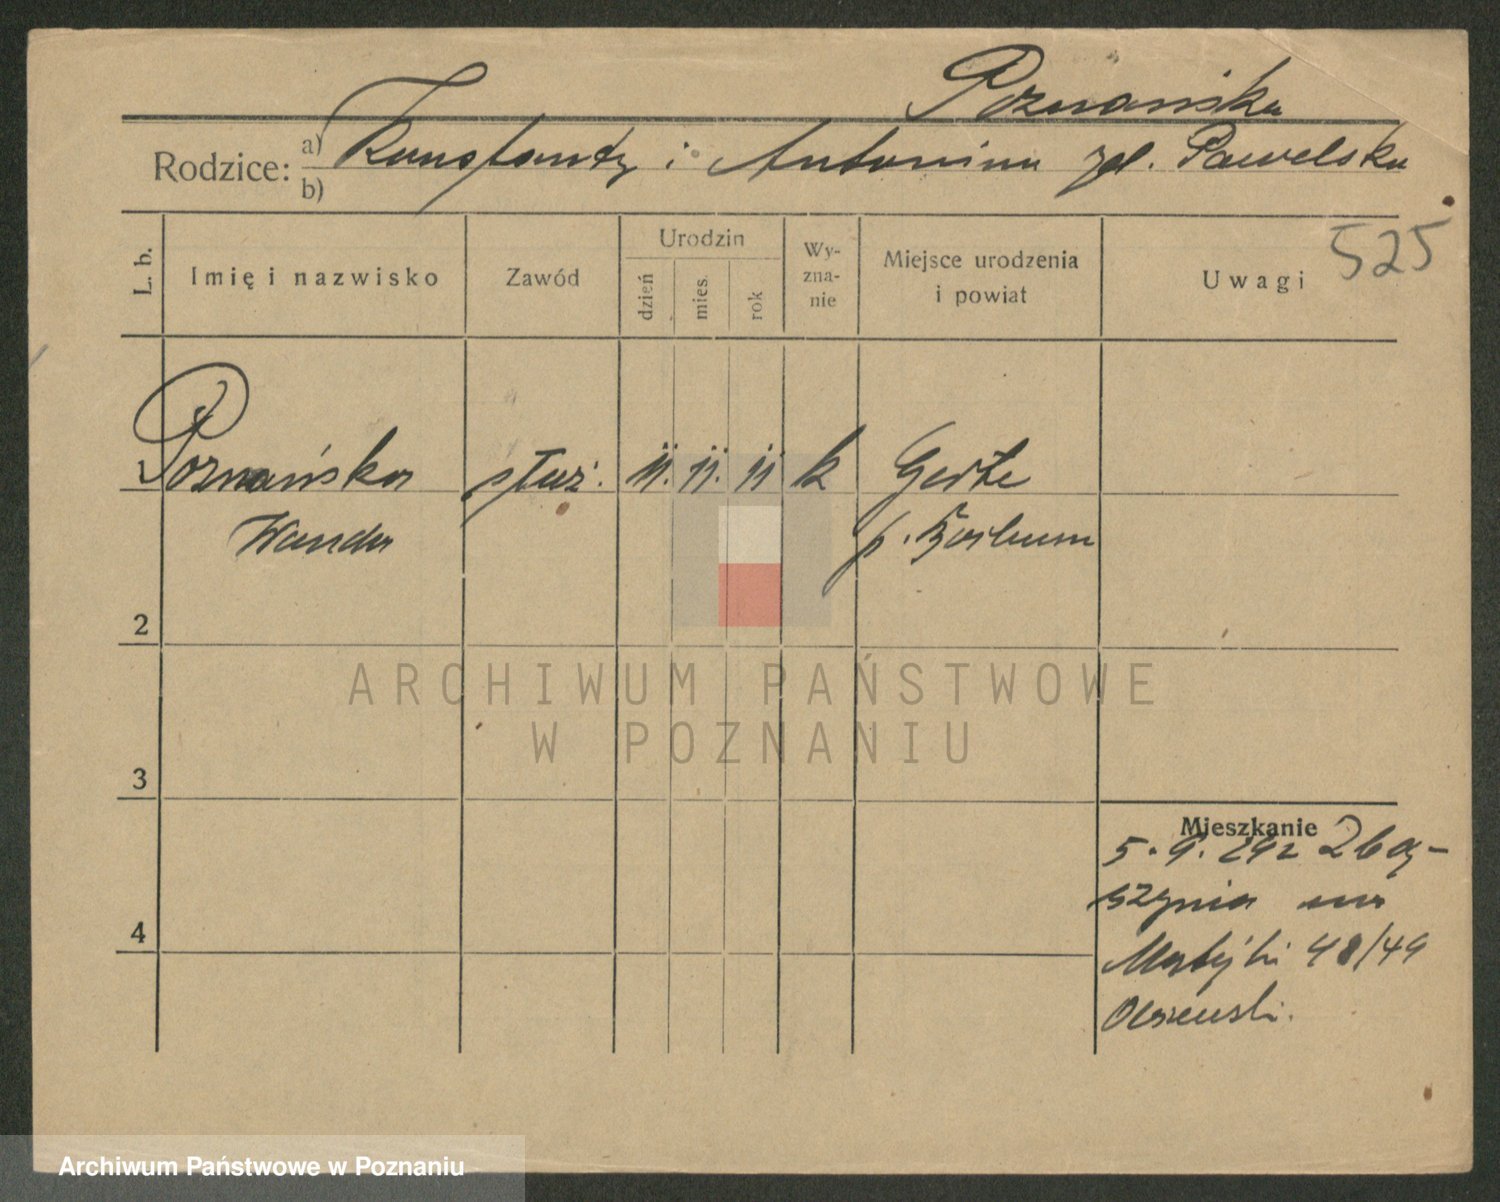 Poznańska
Rodzice: a) Konstanty i Antonina zd. Pawelska
b)
525
L. b. Imię i nazwisko Zawód Urodzin dzień mies. rok Wy-zna-nie Miejsce urodzenia i powiat Uwagi
1 Poznańska służ. 11. 11. 11 k
Wanda p.
2
ARCHIWUM PAŃSTWOWE
W POZNANIU
3
Mieszkanie
5. 9. Zbą-
szynia
4
Matejki 48/49
Olszewski.
Archiwum Państwowe w Poznaniu